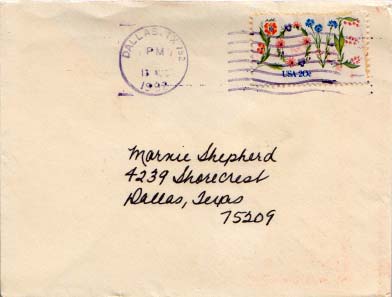 DALLAS, TX 752
PM
13
USA 20c
Marnie Shepherd
4239 Shorecrest
Dallas, Texas
75209